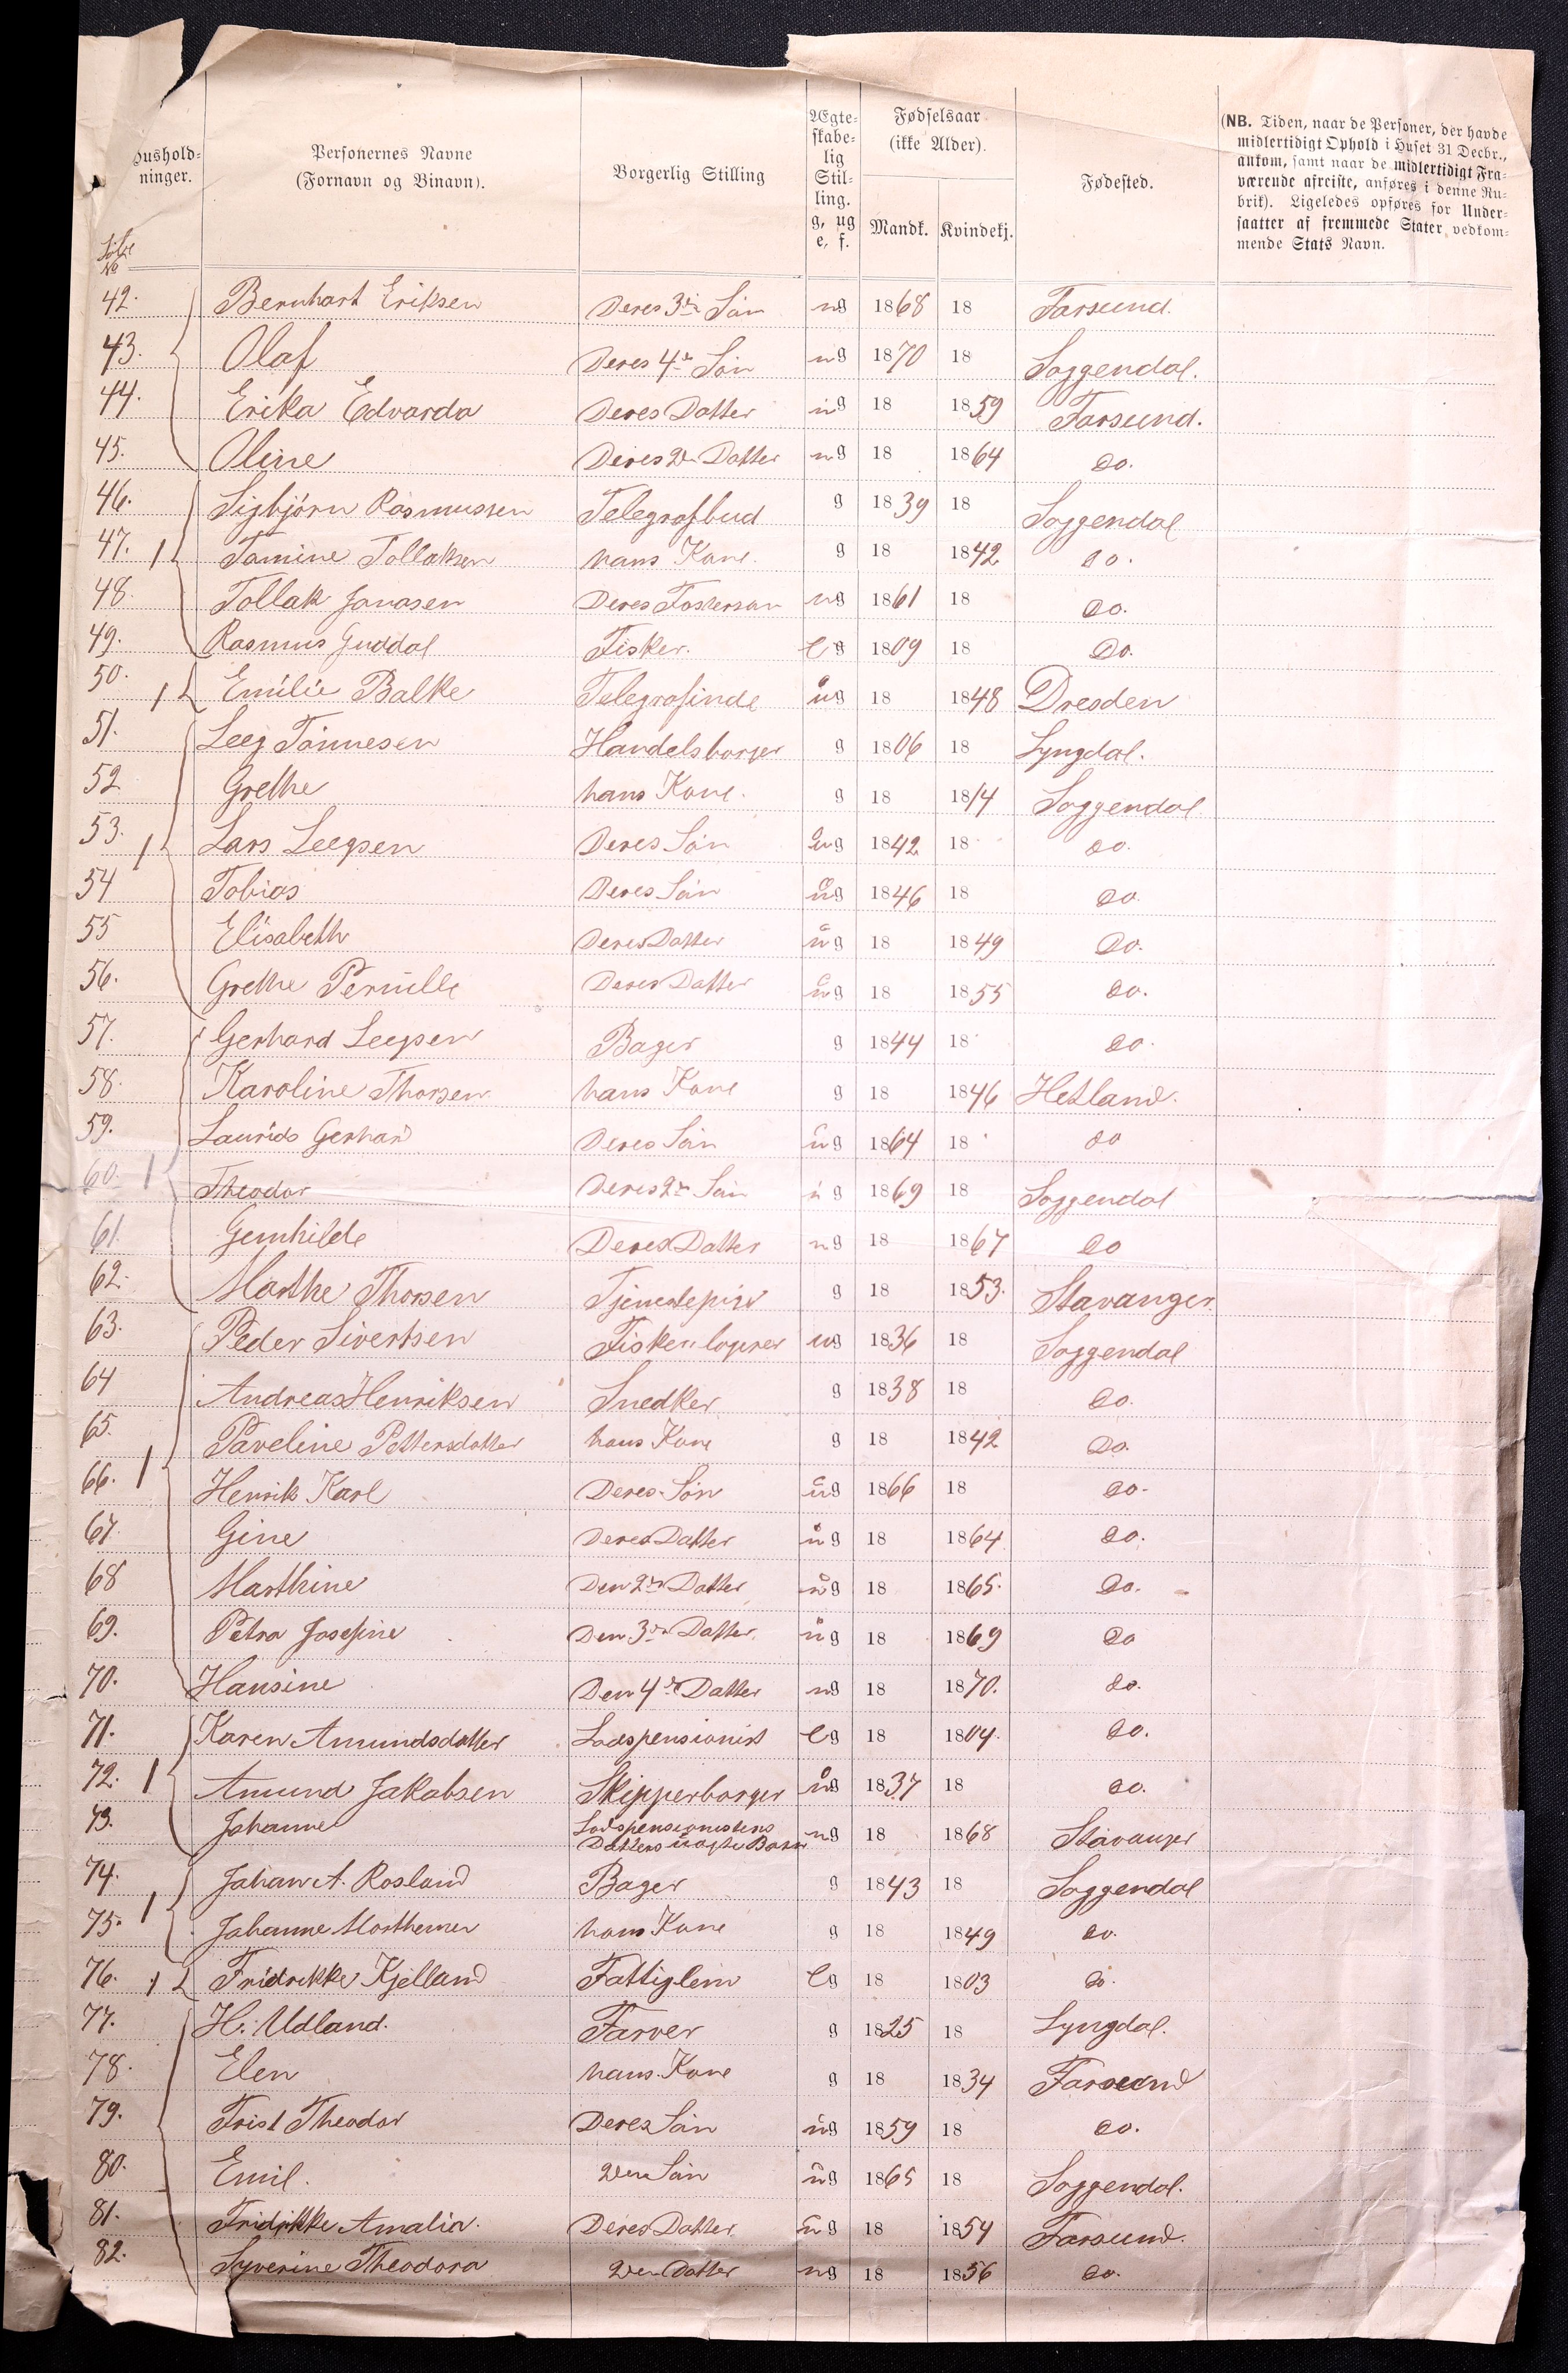 Hushold-
ninger.
Personernes Navne
(Fornavn og Binavn).
Borgerlig Stilling
Ægte-
skabe-
lig
Stil-
ling.
g, ug
e, f.
Fødselsaar
(ikke Alder).
Mandk. Kvindekj.
Fødested.
(NB. Tiden, naar de Personer, der havde
midlertidigt Ophold i Huset 31 Decbr.,
ankom, samt naar de midlertidigt Fra-
værende afreiste, anføres i denne Ru-
brik). Ligeledes opføres for Under-
saatter af fremmede Stater vedkom-
mende Stats Navn.
Løbe
No
42. Bernhart Eriksen Deres 3die Søn ug 1868 18 Farsund.
43. Olaf Deres 4de Søn ug 1870 18 Soggendal.
44. Erika Edvarda Deres Datter ug 18 1859 Farsund.
45. Oline Deres 2den Datter ug 18 1864 do.
46. Sigbjørn Rasmussen Telegrafbud g 1839 18 Soggendal
47. 1 Tamine Tollaksen hans Kone. g 18 1842 do.
48. Tollak Jonasen Deres Fostersøn ug 1861 18 do.
49. Rasmus Guddal Fisker. eg 1809 18 Do.
50. 1 Emilie Balke Telegrafinde ug 18 1848 Dresden
51. Leeg Tönnesen Handelsborger g 1806 18 Lyngdal.
52 Grethe hans Kone. g 18 1814 Soggendal
53. 1 Lars Leegsen Deres Søn ug 1842 18 do.
54 Tobias Deres Søn ug 1846 18 do.
55 Elisabeth Deres Datter ug 18 1849 Do.
56. Grethe Pernille Deres Datter ug 18 1855 do.
57. Gerhard Leegsen Bager g 1844 18 do.
58. Karoline Thorsen hans Kone g 18 1846 Hetland.
59. Laurids Gerhard Deres Søn ug 1864 18 do
60. 1 Theodor Deres 2den Søn ug 1869 18 Soggendal
61. Gunhilde Deres Datter ug 18 1867 do
62. Marthe Thorsen Tjenestepige g 18 1853. Stavanger.
63. Peder Sivertsen Fisker, logerer ug 1836 18 Soggendal
64 Andreas Henriksen Snedker g 1838 18 do.
65. Paveline Pettersdatter hans Kone g 18 1842 Do.
66. 1 Henrik Karl Deres Søn ug 1866 18 do.
67. Gine Deres Datter ug 18 1864 do.
68 Marthine Den 2den Datter ug 18 1865. Do.
69. Petra Josefine Den 3die Datter ug 18 1869 do
70. Hansine Den 4de Datter ug 18 1870. do.
71. Karen Amundsdatter Lodspensionist eg 18 1804. do.
72. 1 Amund Jakobsen Skipperborger ug 1837 18 do.
73. Johanne Lodspensionistens
Datters uægte Barn ug 18 1868 Stavanger
74. Johan A. Rosland Bager g 1843 18 Soggendal
75. 1 Johanne hans Kone g 18 1849 do.
76. 1 Fridrikke Kjelland Fattiglem eg 18 1803 do.
77. H. Udland. Farver g 1825 18 Lyngdal.
78. Elen hans Kone g 18 1834 Farsund
79. Theodor Deres Søn ug 1859 18 do.
80. Emil. 2den Søn ug 1865 18 Soggendal.
81. Fridrikke Amalia. Deres Datter ug 18 1854 Farsund.
82. Syverine Theodora 2den Datter ug 18 1856 do.